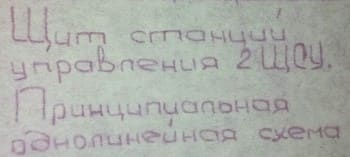 Щит станции
управления 2ЩСУ.
Принципиальная
однолинейная схема